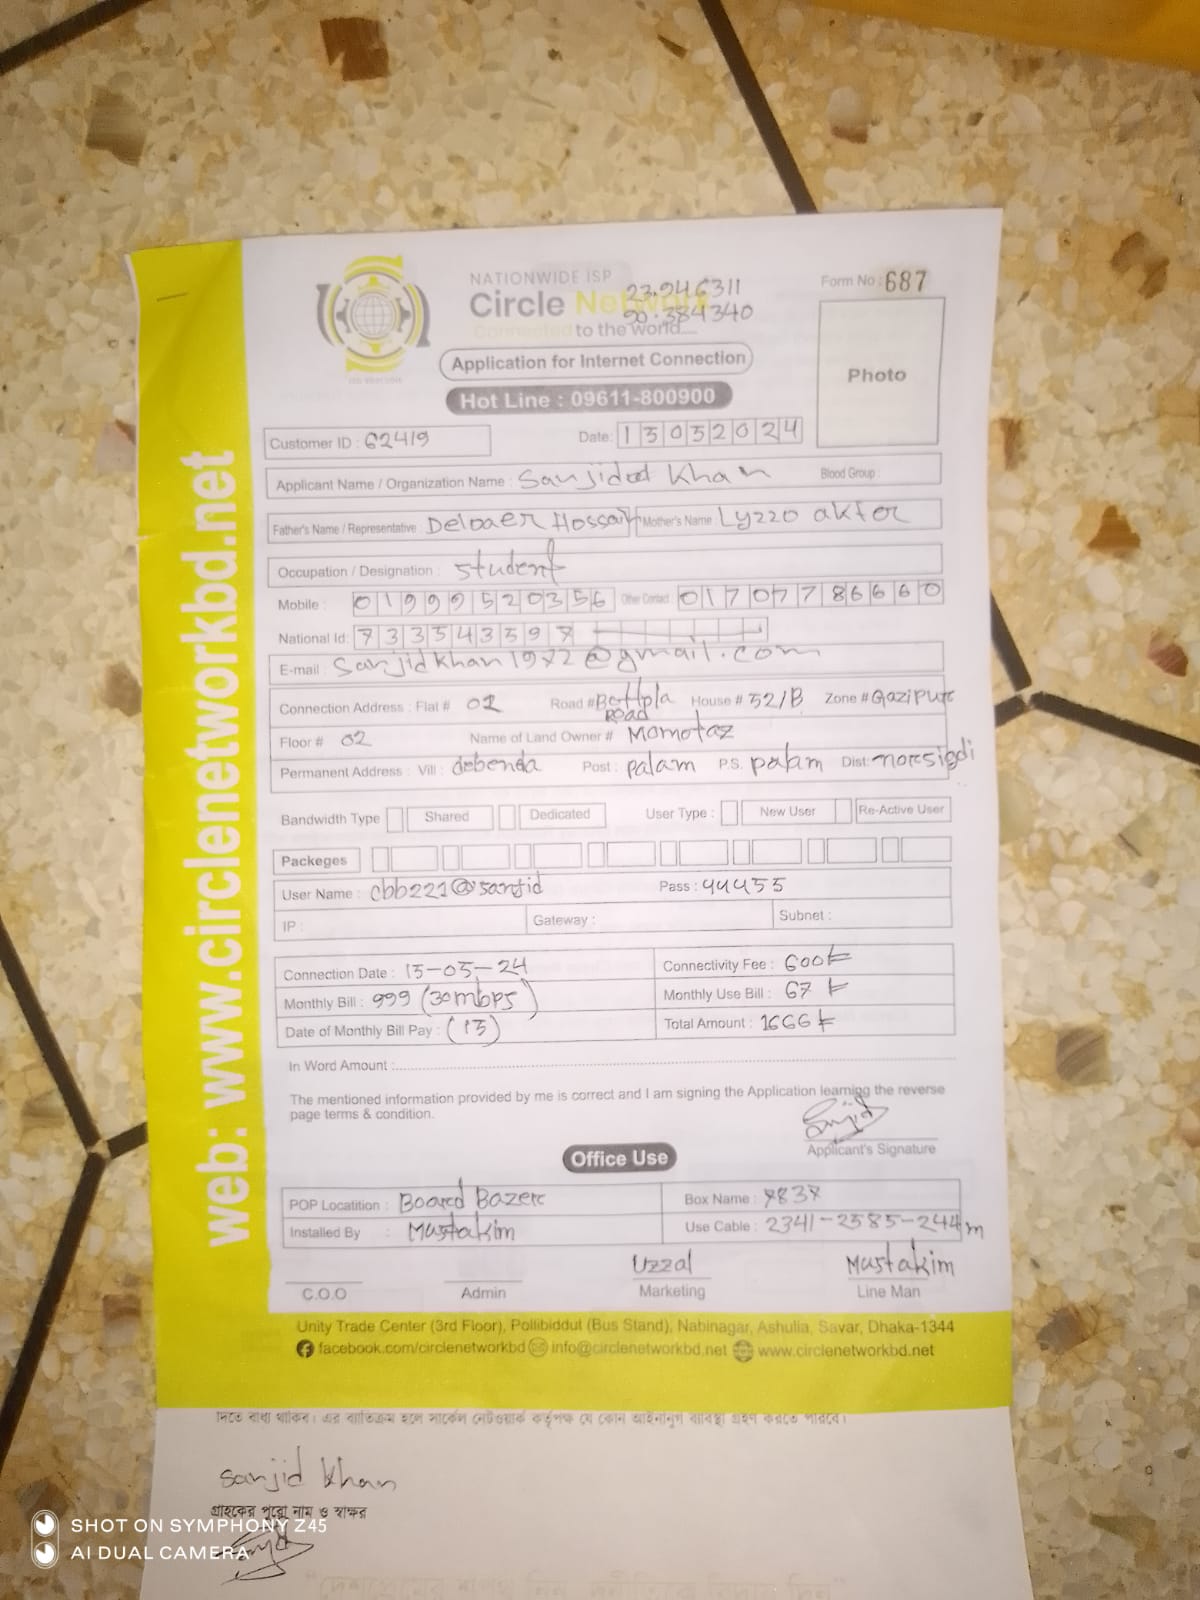 NATIONWIDE ISP
Circle Network
Connected to the world....
23.946311
90.384340
Form No : 687
Photo
Application for Internet Connection
Hot Line : 09611-800900
Customer ID : 62419
Date: 15052024
Applicant Name / Organization Name : Sanjid Khan
Blood Group :
Father's Name / Representative Deloaer Hossain
Mother's Name : Lyzzo akter
Occupation / Designation : student
Mobile : 01999520356 Other Contact 01707786660
National Id: 733543597
E-mail : Sanjidkhan1972@gmail.com
Connection Address : Flat # 02 Road # road House # 52/B Zone # Gazipur
Floor # 02 Name of Land Owner # Momotaz
Permanent Address : Vill : debenda Post : palam P.S. palam Dist: norsigdi
Bandwidth Type Shared Dedicated User Type : New User Re-Active User
Packeges
User Name : cbb221@sanjid Pass : 44455
IP : Gateway : Subnet :
Connection Date : 15-05-24 Connectivity Fee : 600
Monthly Bill : 999 (30mbps) Monthly Use Bill : 67
Date of Monthly Bill Pay : (15) Total Amount : 1666
In Word Amount :
The mentioned information provided by me is correct and I am signing the Application learning the reverse
page terms & condition.
Sanjid
Applicant's Signature
Office Use
POP Locatition : Board Bazer Box Name : 7837
Installed By : Mustakim Use Cable : 2341-2585-244m
Uzzal Mustakim
C.O.O Admin Marketing Line Man
Unity Trade Center (3rd Floor), Pollibiddut (Bus Stand), Nabinagar, Ashulia, Savar, Dhaka-1344
facebook.com/circlenetworkbd info@circlenetworkbd.net www.circlenetworkbd.net
web: www.circlenetworkbd.net
দিতে বাধ্য থাকিব। এর ব্যতিক্রম হলে সার্কেল নেটওয়ার্ক কর্তৃপক্ষ যে কোন আইনানুগ ব্যবস্থা গ্রহণ করতে পারবে।
Sanjid Khan
গ্রাহকের পুরো নাম ও স্বাক্ষর
SHOT ON SYMPHONY Z45
AI DUAL CAMERA